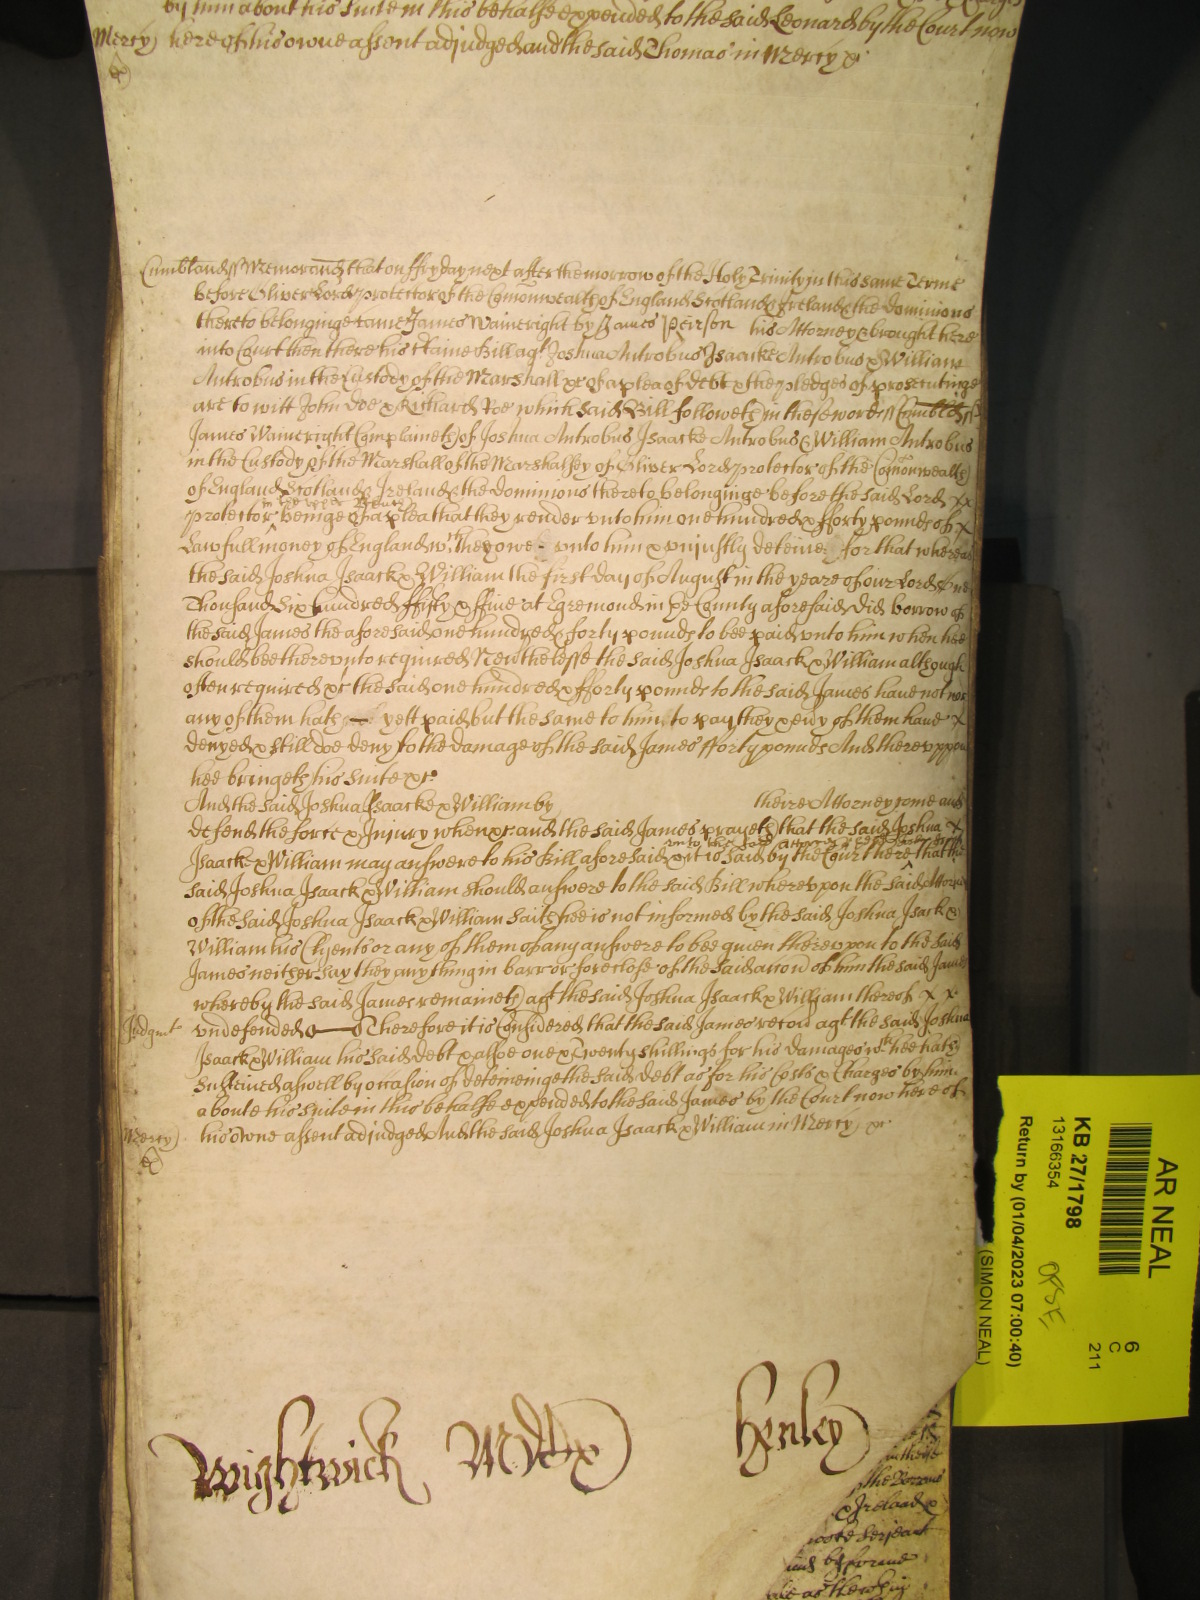 by him about his suite in this behalfe expended to the said Leonard by the Court now
Mercy here of his owne assent adjudged and the said Thomas in Mercy &c
Cumbland ss Memorand that on ffryday next after the morrow of the Holy Trinity in this same Terme
before Oliver Lord protector of the Comonwealth of England Scotland & Ireland & the dominions
thereto belonginge came James Wainright by James Peirson his Attorney & brought here
into Court then there his Bill agt Joshua Antrobus Isaacke Antrobus & William
Antrobus in the Custody of the Marshall &c of a plea of debt & the pledges of prosecutinge
are to witt John Doe & Richard Roe which said Bill followeth in these words ss Cumbland ss
James Wainright Complaineth of Joshua Antrobus Isaacke Antrobus & William Antrobus
in the Custody of the Marshall of the Marshalsey of Oliver Lord protector of the Comonwealth
of England Scotland & Ireland & the dominions thereto belonginge before the said Lord x x
in the upper Bench
protector beinge of a plea that they render unto him one hundred & fforty pounds of x
Lawfull money of England wch they owe unto him & unjustly deteine for that whereas
the said Joshua Isaack & William the first day of August in the yeare of our Lord One
Thousand Six hundred ffifty & ffive at Egremond in ye County aforesaid did borrow of
the said James the aforesaid one hundred & forty pounds to bee paid unto him when hee
should bee thereunto required Neverthelesse the said Joshua Isaack & William although
often required &c the said one hundred & fforty pounds to the said James have not nor
any of them hath yett paid but the same to him to pay they & every of them have x
denyed & still doe deny to the damage of the said James fforty pounds And thereuppon
hee bringeth his suite &c
And the said Joshua Isaacke & William by theire Attorney come and
defend the force & Injury when &c and the said James prayeth that the said Joshua x
Isaacke & William may answere to his Bill aforesaid &c it is said by the Court there that the
unto the said Attorney
said Joshua Isaack & William should answere to the said Bill whereuppon the said Attorney
of the said Joshua Isaack & William saith hee is not informed by the said Joshua Isack &
William his Clyents or any of them of any answere to bee given thereupon to the said
James neither say they any thing in barr or foreclose of the said accon of him the said James
whereby the said James remaineth agt the said Joshua Isaack & William thereof x x
Judgmt undefended Therefore it is Considered that the said James recov agt the said Joshua
Isaack & William his said debt & alsoe one & Twenty shillings for his damages wch hee hath
Susteined aswell by occasion of deteineinge the said debt as for his Costs & Charges by him
aboute his suite in this behalfe expended to the said James by the Court now here of
Mercy his owne assent adjudged And the said Joshua Isaack & William in Mercy &c
Wightwick Henley
the
& Ireland &
Serjeant
AR NEAL
6
C
211
KB 27/1798
13166354
Return by (01/04/2023 07:00:40)
(SIMON NEAL)